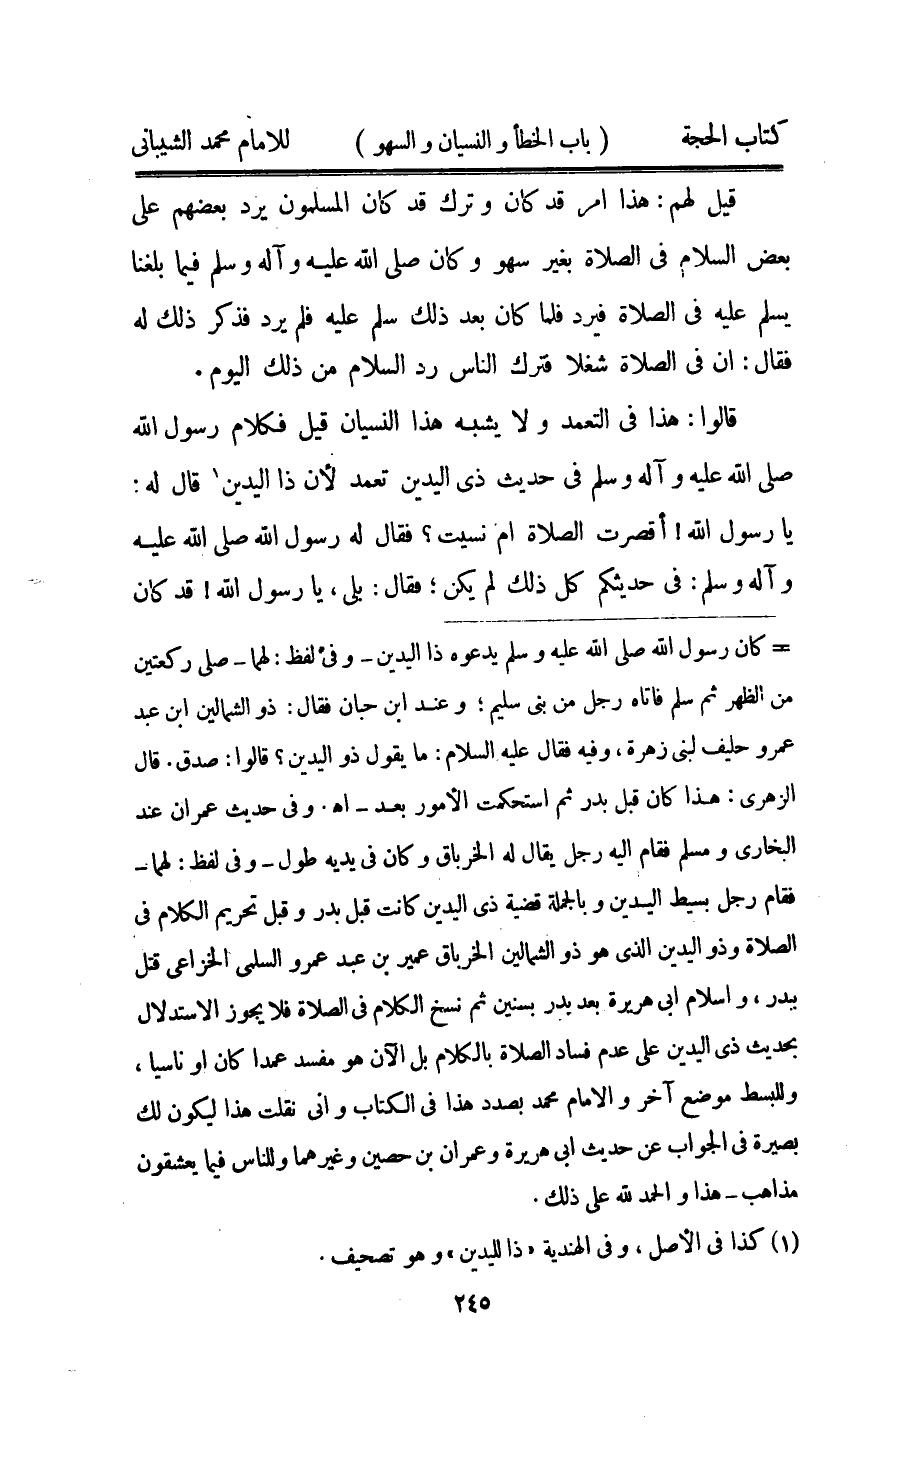 كتاب الحجة ( باب الخطأ و النسيان و السهو ) للامام محمد الشيبانى
قيل لهم : هذا امر قد كان و ترك قد كان المسلمون يرد بعضهم على
بعض السلام فى الصلاة بغير سهو و كان صلى الله عليه و آله و سلم فيما بلغنا
يسلم عليه فى الصلاة فيرد فلما كان بعد ذلك سلم عليه فلم يرد فذكر ذلك له
فقال : ان فى الصلاة شغلا فترك الناس رد السلام من ذلك اليوم .
قالوا : هذا فى التعمد و لا يشبه هذا النسيان قيل فكلام رسول الله
صلى الله عليه و آله و سلم فى حديث ذى اليدين تعمد لأن ذا اليدين١ قال له :
يا رسول الله ! أقصرت الصلاة ام نسيت ؟ فقال له رسول الله صلى الله عليه
و آله و سلم : فى حديثكم كل ذلك لم يكن ؛ فقال : بلى ، يا رسول الله ! قد كان
= كان رسول الله صلى الله عليه و سلم يدعوه ذا اليدين ـ و فى لفظ : لهما ـ صلى ركعتين
من الظهر ثم سلم فاتاه رجل من بنى سليم ؛ و عند ابن حبان فقال : ذو الشمالين ابن عبد
عمرو حليف لبنى زهرة ، وفيه فقال عليه السلام : ما يقول ذو اليدين ؟ قالوا : صدق . قال
الزهرى : هذا كان قبل بدر ثم استحكمت الأمور بعد ـ اه . و فى حديث عمران عند
البخارى و مسلم فقام اليه رجل يقال له الخرباق و كان فى يديه طول ـ و فى لفظ : لهما ـ
فقام رجل بسيط اليدين و بالجملة قضية ذى اليدين كانت قبل بدر و قبل تحريم الكلام فى
الصلاة وذو اليدين الذى هو ذو الشمالين الخرباق عمير بن عبد عمرو السلمى الخزاعى قتل
ببدر ، و اسلام ابى هريرة بعد بدر بسنين ثم نسخ الكلام فى الصلاة فلا يجوز الاستدلال
بحديث ذى اليدين على عدم فساد الصلاة بالكلام بل الآن هو مفسد عمدا كان او ناسيا ،
وللبسط موضع آخر و الامام محمد بصدد هذا فى الكتاب و انى نقلت هذا ليكون لك
بصيرة فى الجواب عن حديث ابى هريرة وعمران بن حصين وغيرهما وللناس فيما يعشقون
مذاهب ـ هذا و الحمد لله على ذلك .
(١) كذا فى الأصل ، و فى الهندية « ذا لليدين » و هو تصحيف .
٢٤٥